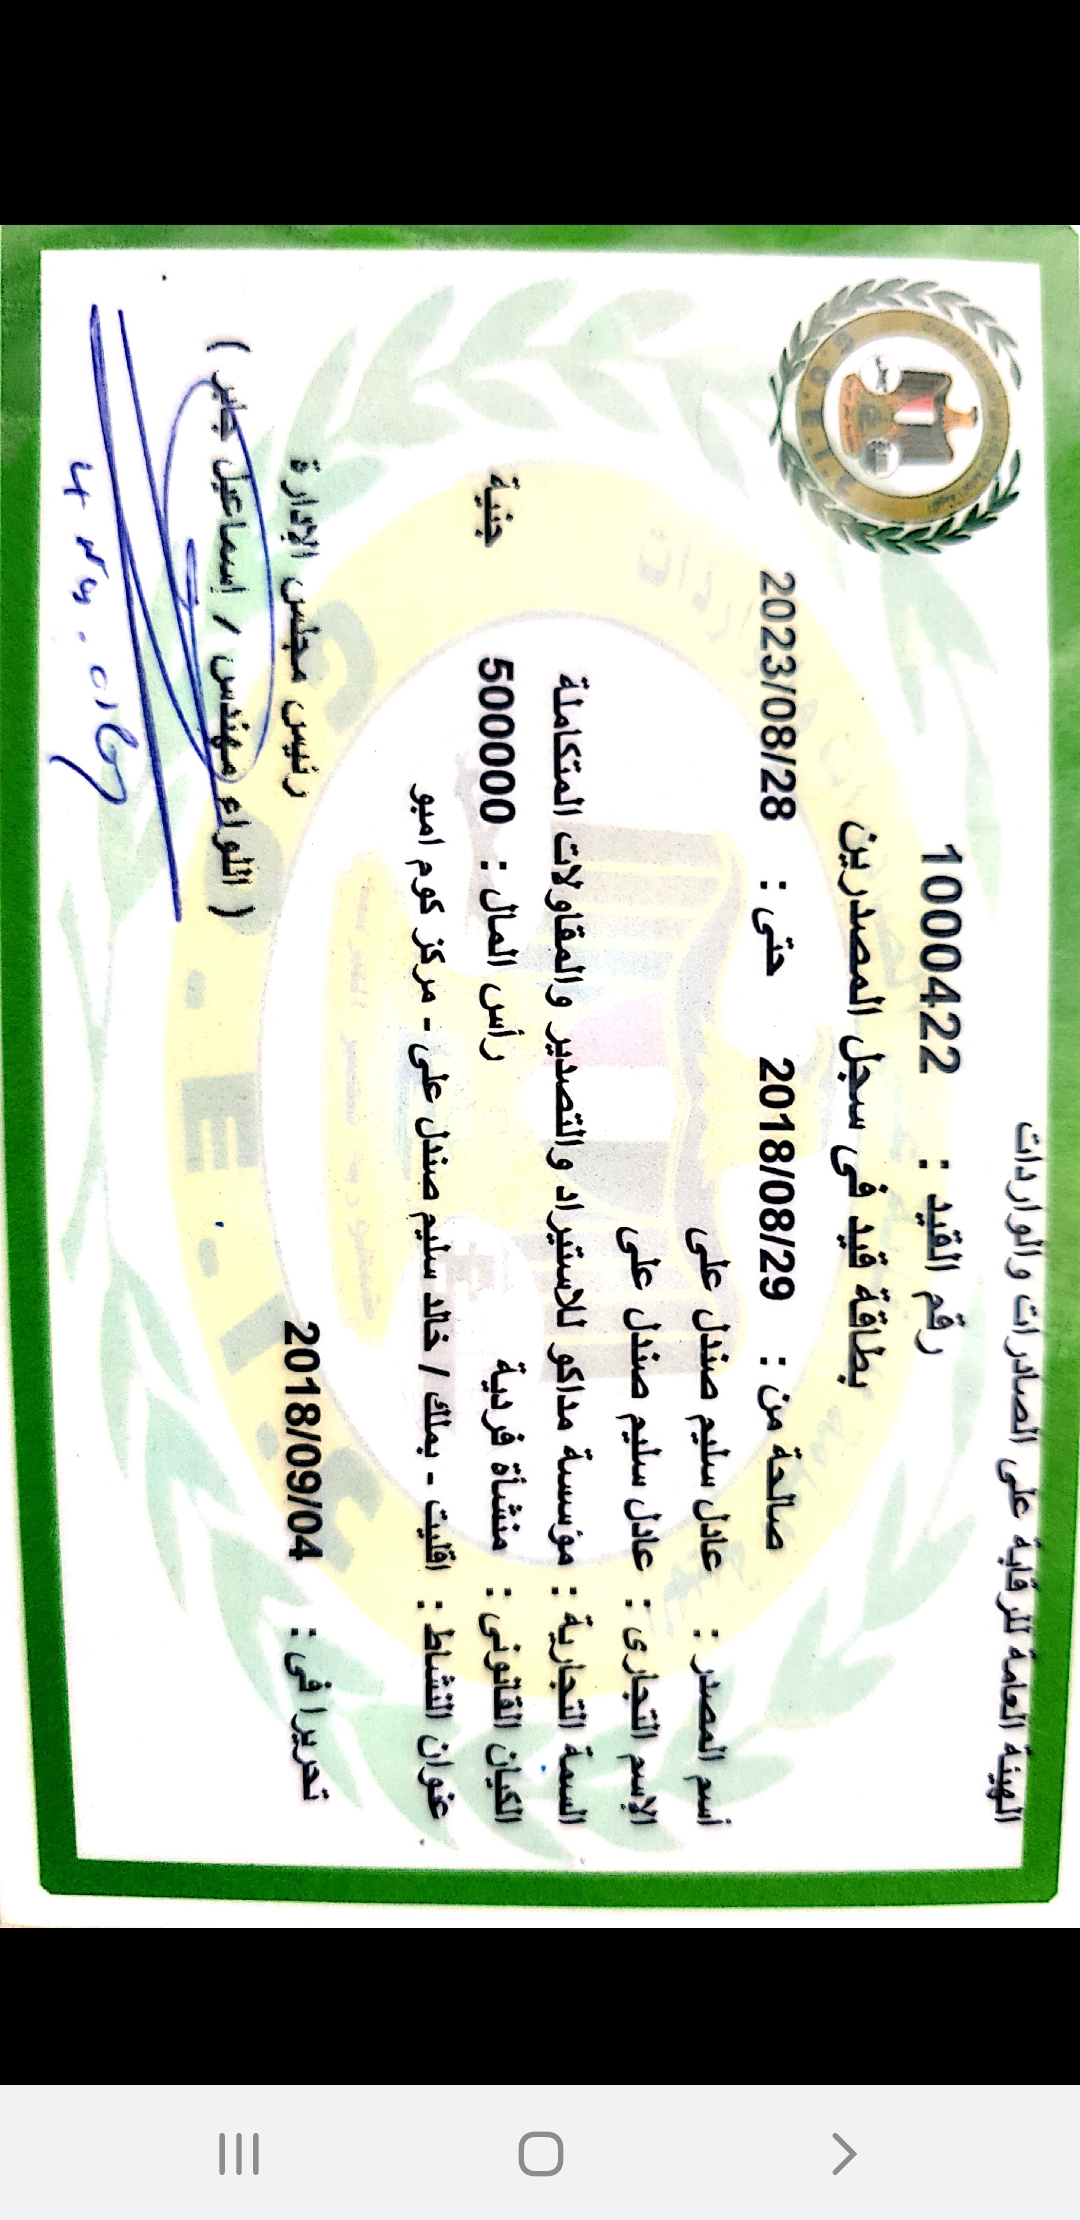 الهيئة العامة للرقابة على الصادرات والواردات
رقم القيد : 1000422
بطاقة قيد فى سجل المصدرين
صالحة من : 2018/08/29 حتى : 2023/08/28
أسم المصدر : عادل سليم صندل على
الإسم التجارى : عادل سليم صندل على
السمة التجارية : مؤسسة مداكو للاستيراد والتصدير والمقاولات المتكاملة
الكيان القانونى : منشأة فردية رأس المال : 500000 جنية
عنوان النشاط : اقليت - بملك / خالد سليم صندل على - مركز كوم امبو
تحريرا فى : 2018/09/04 رئيس مجلس الإدارة
( اللواء مهندس / إسماعيل جابر )